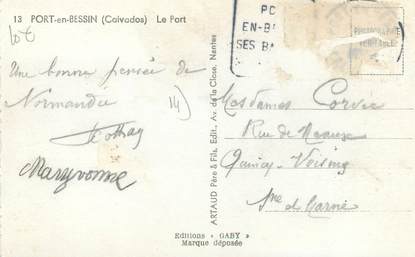 13 PORT-en-BESSIN (Calvados) Le Port
Lot
PO
EN-B
SES BA
PHOTOGRAPHIE
VÉRITABLE
Une bonne pensée de
Normandie
14)
Maryvonne
ARTAUD Père & Fils, Edit., Av. de la Close, Nantes
Mesdames Corvec
Rue de Meaux
Quincy-Voisins
Sne et Marne
Editions « GABY »
Marque déposée